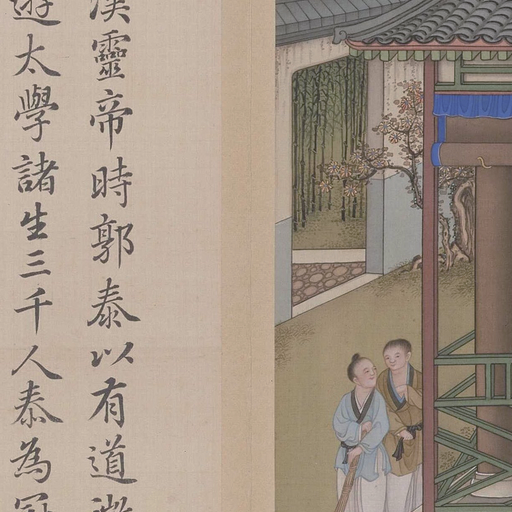 漢靈帝時郭泰以有道
遊太學諸生三千人泰為冠